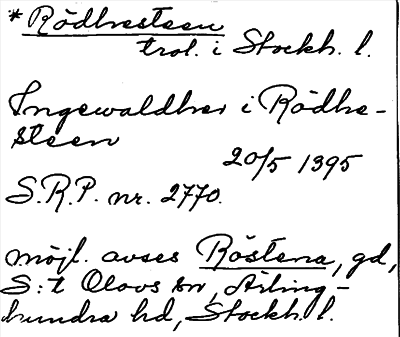 *Rödhesteen
trol. i Stockh. l.
Ingewaldher i Rödhe-
steen
20/5 1395
S.R.P. nr. 2770.
möjl. avses Röstena, gd,
S:t Olovs sn, Ärling-
hundra hd, Stockh. l.